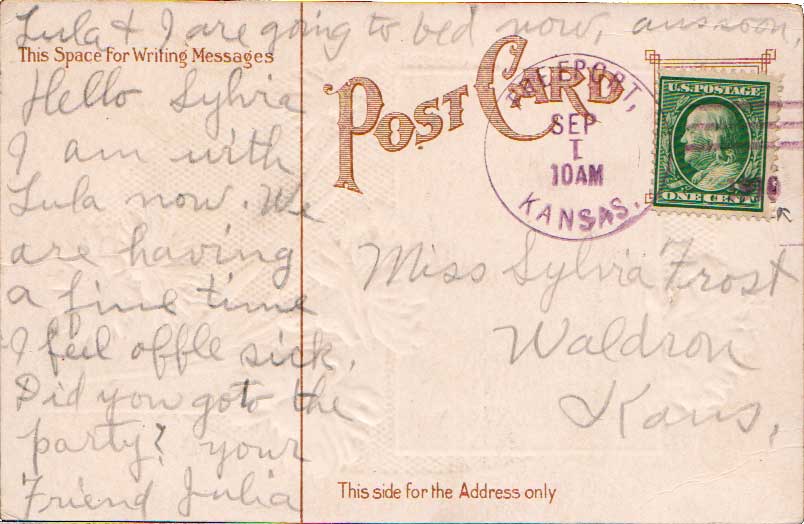 Lula & I are going to bed now, ans soon,
This Space for Writing Messages
Hello Sylvia
I am with
Lula now. We
are having
a fine time
I feel offle sick.
Did you goto the
party? your
Friend Julia
POST CARD
FREEPORT,
SEP
1
10AM
KANSAS.
U.S. POSTAGE
ONE CENT
Miss Sylvia Frost
Waldron
Kans,
This side for the Address only